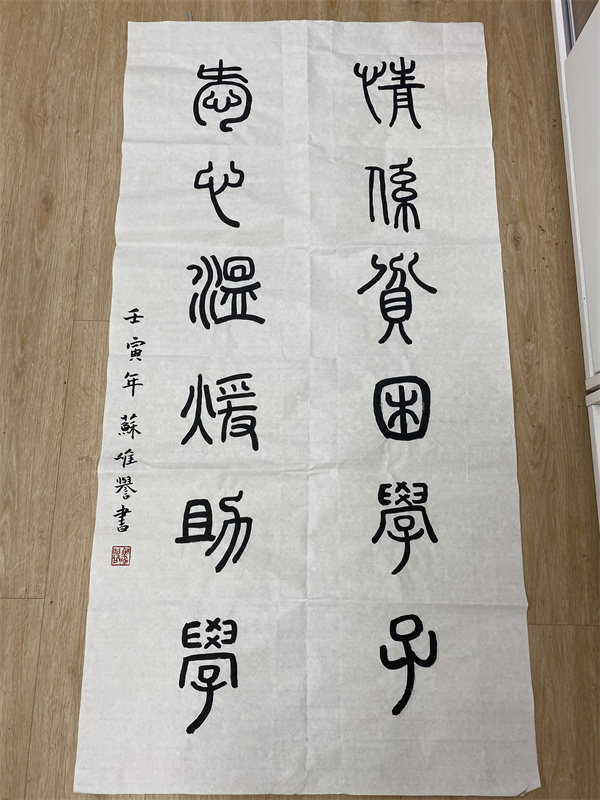 情係貧困學子
愛心溫煖助學
壬寅年蘇維譽書